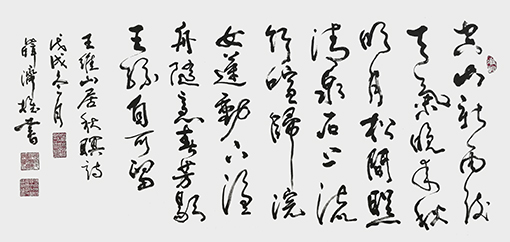 空山新雨後
天氣晚來秋
明月松間照
清泉石上流
竹喧歸浣
女蓮動下漁
舟隨意春芳歇
王孫自可留
王維山居秋暝詩
戊戌冬月
書